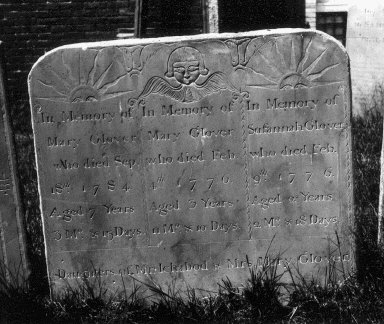 In Memory of
Mary Glover
who died Sep.
18th 1784
Aged 7 Years
3 Mo. & 13 Days.
In Memory of
Mary Glover
who died Feb.
1776
Aged 3 Years
11 Mo. & 10 Days.
In Memory of
Sufannah Glover
who died Feb.
9th 1776
Aged Years
2 Mo. & 18 Days.
Daughters of Mr. Ichabod & Mrs. Mary Glover